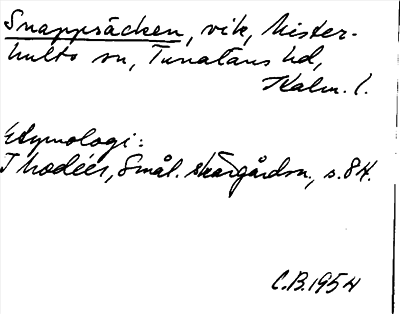 Snappsäcken, vik, Mister-
hults sn, Tunaläns hd,
Kalm. l.
Etymologi:
T Modéer, Smål. skärgårdsn., s. 84.
C.B. 1954